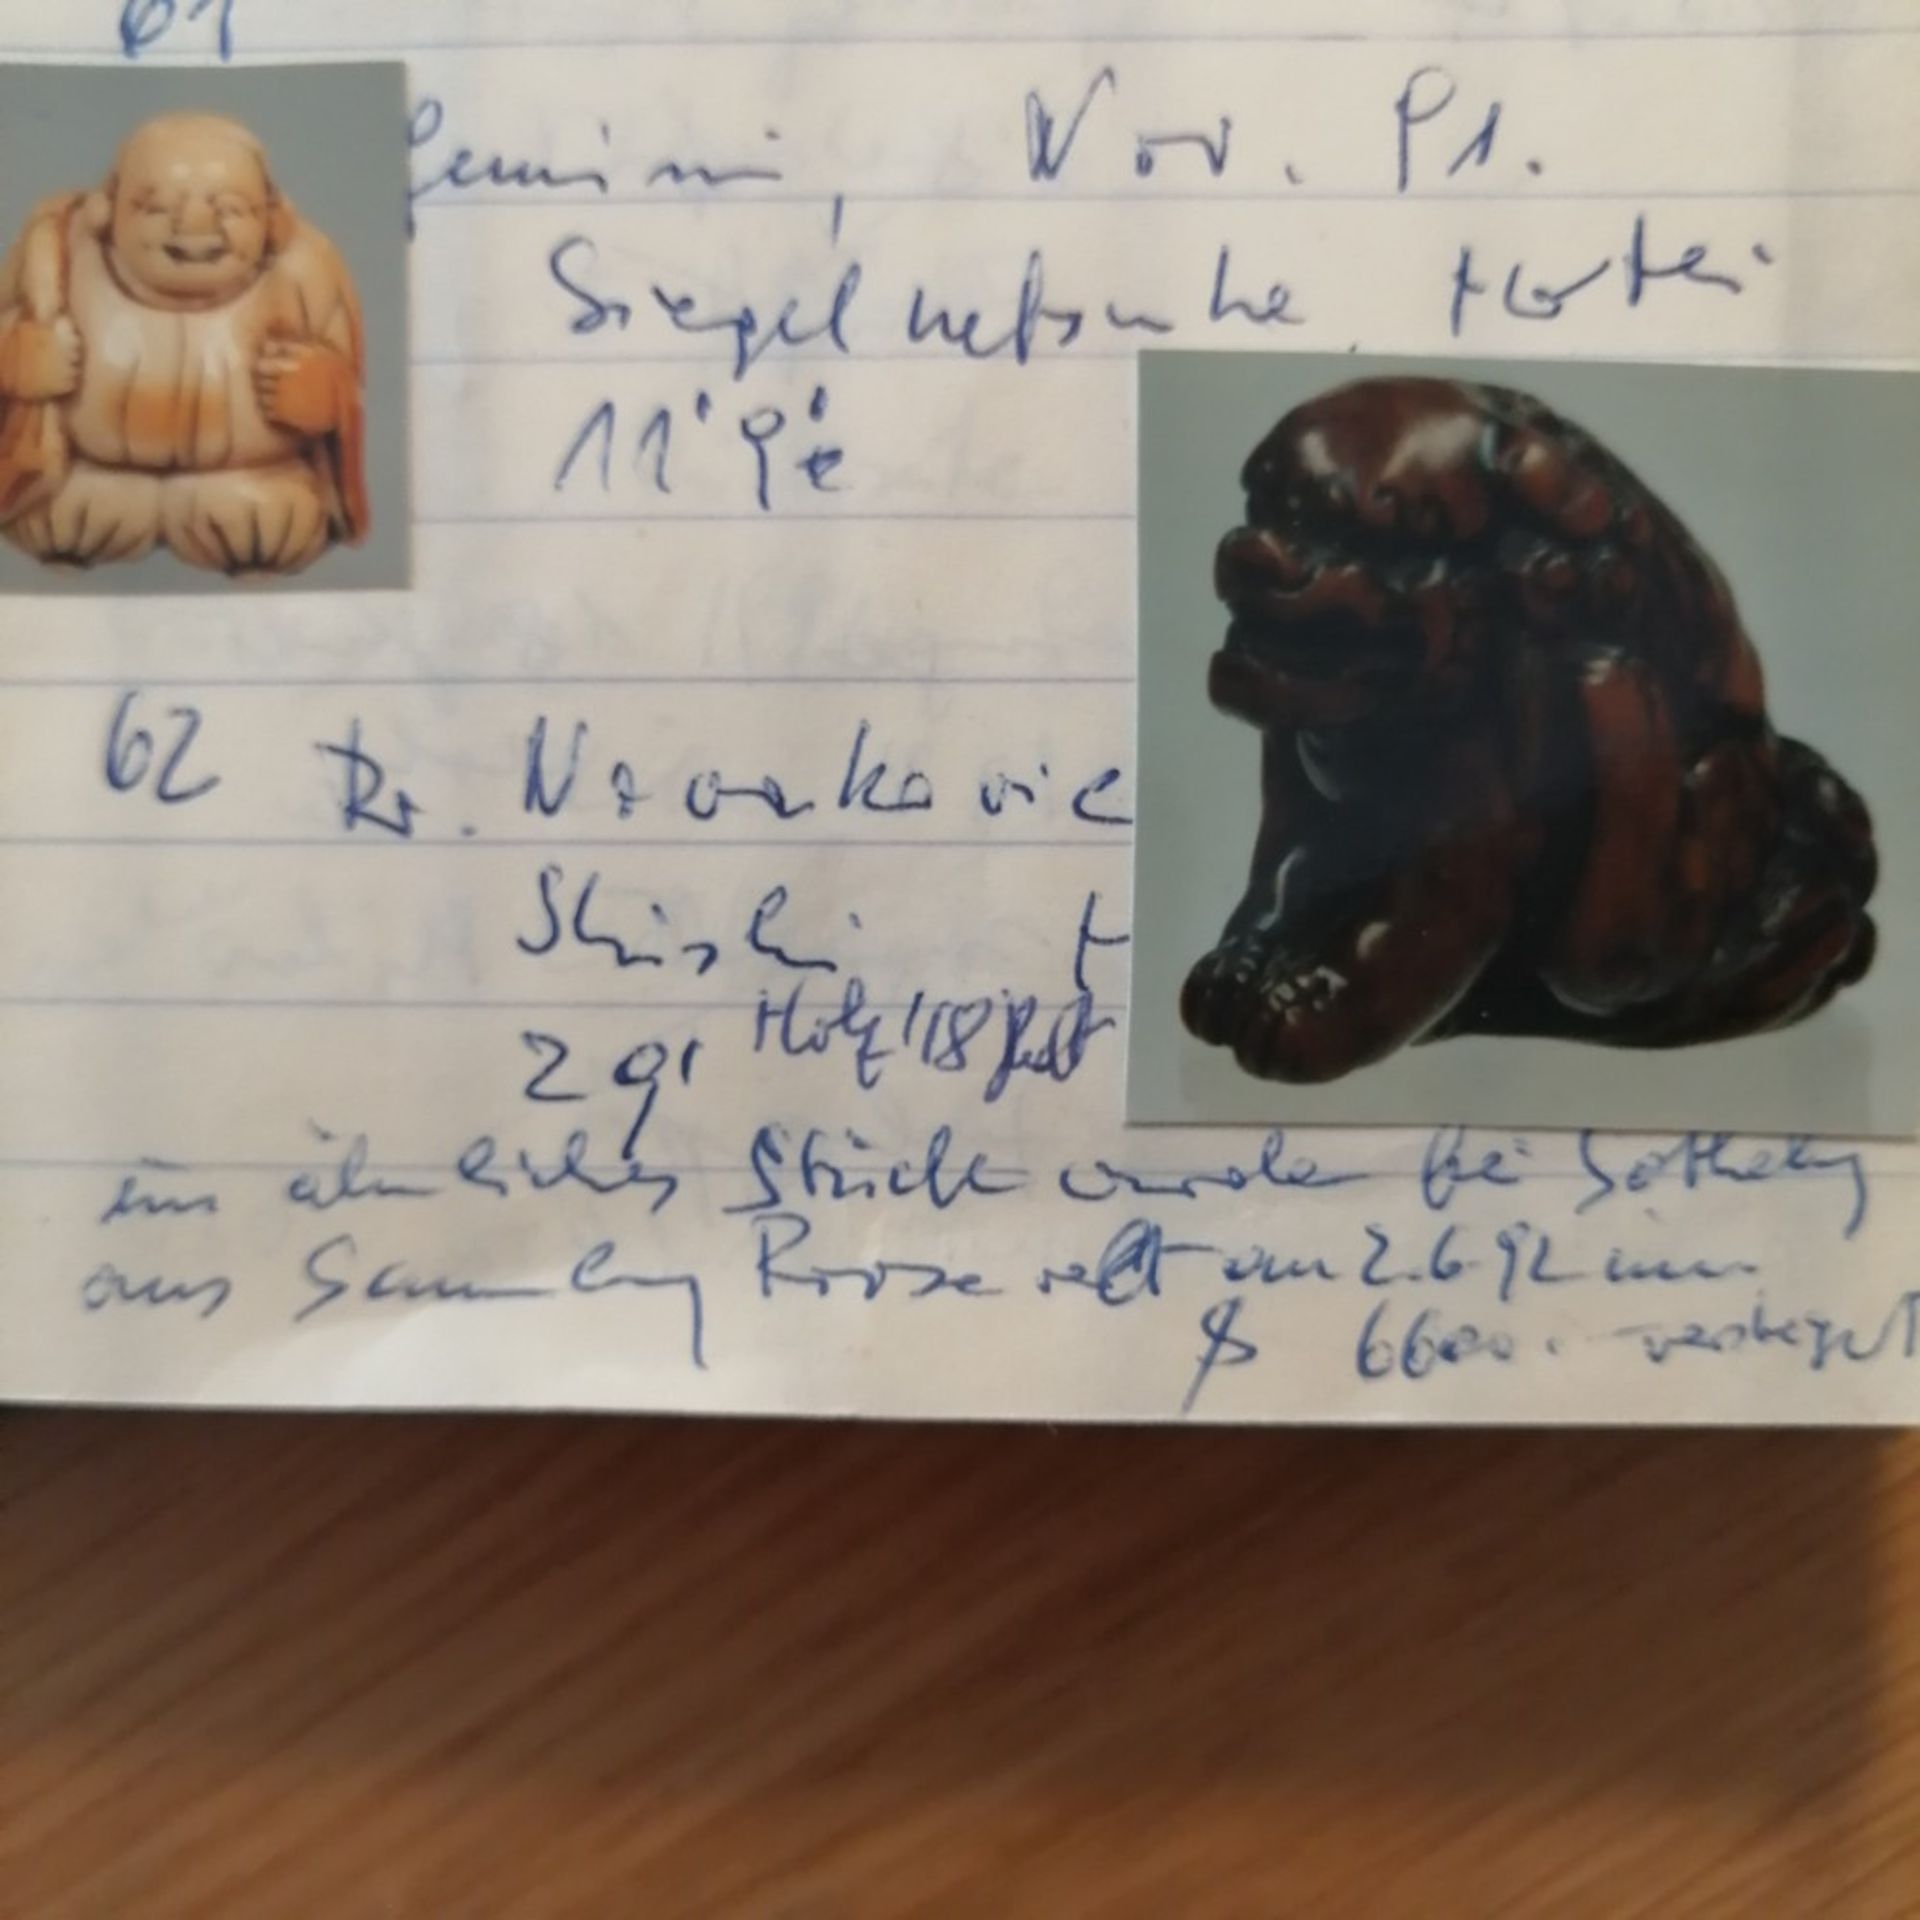 61
Gemini, Nov. 91.
Siegelnetsuke, Hotei
62 Dr.
Shishi
Holz 18 Jhdt
ein ähnliches Stück wurde bei Sotheby
aus Sammlung Roosevelt am 2.6.92 um
$ 6600.- versteigert